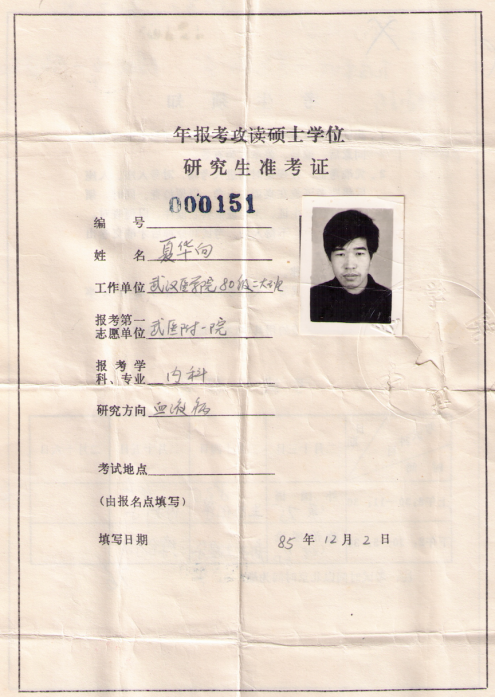 年报考攻读硕士学位
研究生准考证
编 号 000151
姓 名 夏华向
工作单位 武汉医学院80级二大班
报考第一
志愿单位 武医附一院
报考学
科、专业 内科
研究方向 血液病
考试地点
(由报名点填写)
填写日期 85 年 12 月 2 日